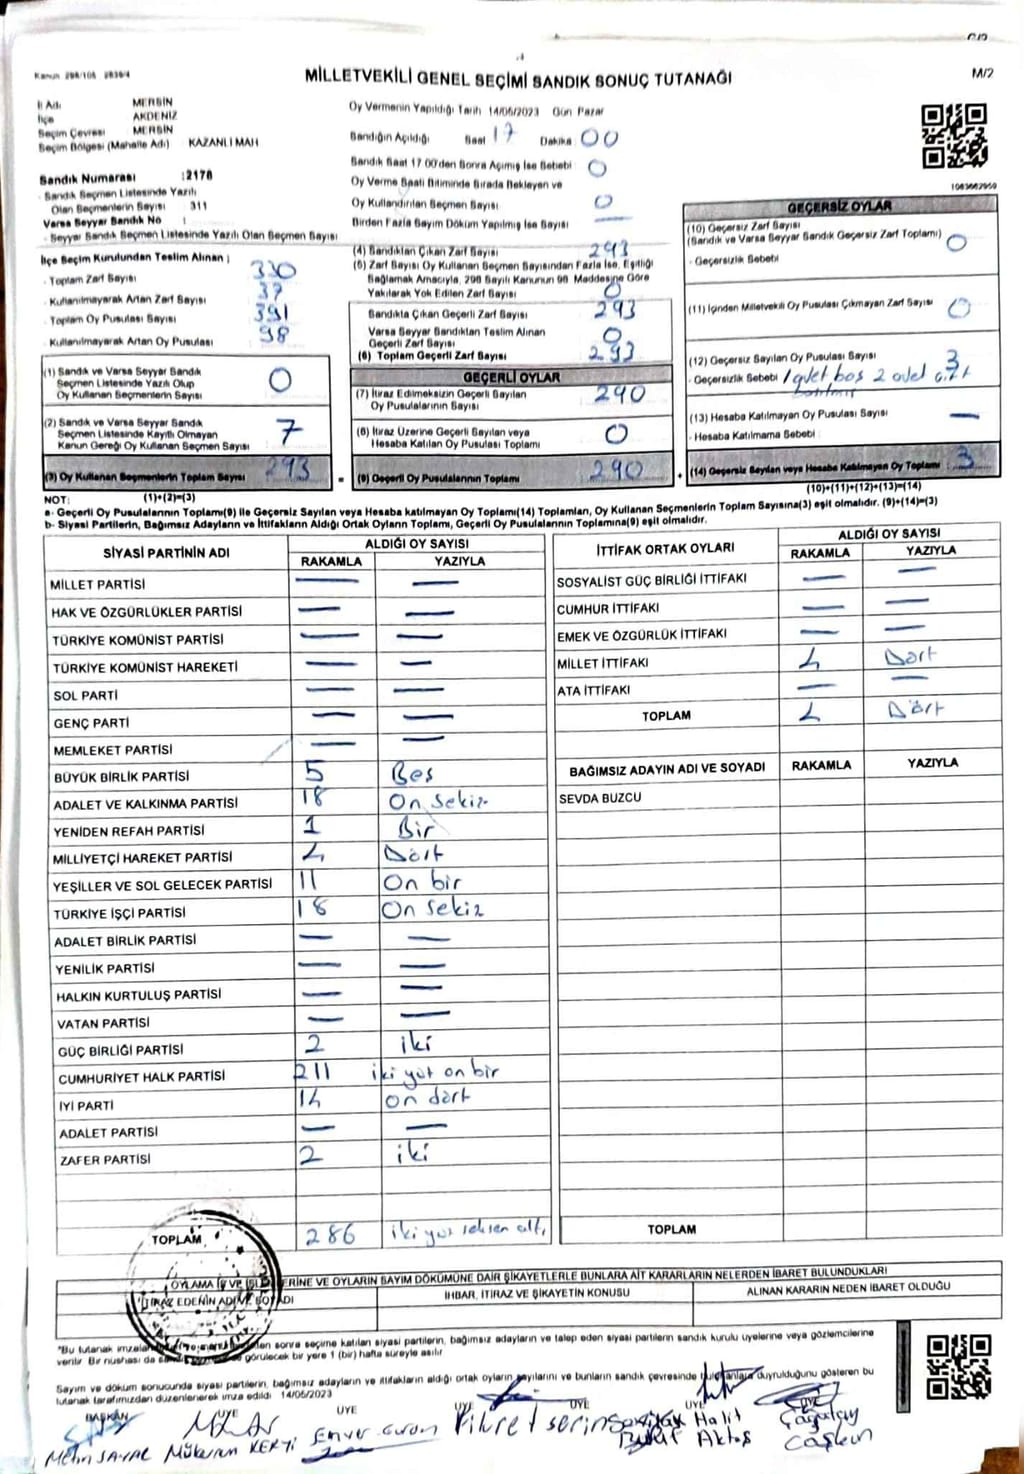 Kanun 298/108 2839/4
MİLLETVEKİLİ GENEL SEÇİMİ SANDIK SONUÇ TUTANAĞI
M/2
İl Adı MERSİN
İlçe AKDENİZ
Seçim Çevresi MERSİN
Seçim Bölgesi (Mahalle Adı) KAZANLI MAH
Oy Vermenin Yapıldığı Tarih 14/05/2023 Gün Pazar
Sandığın Açıldığı Saat 17 Dakika 00
Sandık Saat 17 00'den Sonra Açımış İse Sebebi 0
Oy Verme Saati Bitiminde Sırada Bekleyen ve
Oy Kullandırılan Seçmen Sayısı 0
Birden Fazla Sayım Döküm Yapılmış İse Sayısı —
Sandık Numarası :2178
- Sandık Seçmen Listesinde Yazılı
Olan Seçmenlerin Sayısı 311
Varsa Seyyar Sandık No :
- Seyyar Sandık Seçmen Listesinde Yazılı Olan Seçmen Sayısı
İlçe Seçim Kurulundan Teslim Alınan ;
- Toplam Zarf Sayısı 330
- Kullanılmayarak Artan Zarf Sayısı 37
- Toplam Oy Pusulası Sayısı 391
- Kullanılmayarak Artan Oy Pusulası 98
(1) Sandık ve Varsa Seyyar Sandık
Seçmen Listesinde Yazılı Olup
Oy Kullanan Seçmenlerin Sayısı 0
(2) Sandık ve Varsa Seyyar Sandık
Seçmen Listesinde Kayıtlı Olmayan
Kanun Gereği Oy Kullanan Seçmen Sayısı 7
(3) Oy Kullanan Seçmenlerin Toplam Sayısı 293
(4) Sandıktan Çıkan Zarf Sayısı 293
(5) Zarf Sayısı Oy Kullanan Seçmen Sayısından Fazla İse, Eşitliği
Sağlamak Amacıyla, 298 Sayılı Kanunun 98 Maddesine Göre
Yakılarak Yok Edilen Zarf Sayısı 0
Sandıkta Çıkan Geçerli Zarf Sayısı 293
Varsa Seyyar Sandıktan Teslim Alınan
Geçerli Zarf Sayısı 0
(6) Toplam Geçerli Zarf Sayısı 293
GEÇERLİ OYLAR
(7) İtiraz Edilmeksizin Geçerli Sayılan
Oy Pusulalarının Sayısı 290
(8) İtiraz Üzerine Geçerli Sayılan veya
Hesaba Katılan Oy Pusulası Toplamı 0
(9) Geçerli Oy Pusulalarının Toplamı 290
1083662959
GEÇERSİZ OYLAR
(10) Geçersiz Zarf Sayısı
(Sandık ve Varsa Seyyar Sandık Geçersiz Zarf Toplamı) 0
- Geçersizlik Sebebi
(11) İçinden Milletvekili Oy Pusulası Çıkmayan Zarf Sayısı 0
(12) Geçersiz Sayılan Oy Pusulası Sayısı 3
- Geçersizlik Sebebi 1 boş 2
(13) Hesaba Katılmayan Oy Pusulası Sayısı —
- Hesaba Katılmama Sebebi
(14) Geçersiz Sayılan veya Hesaba Katılmayan Oy Toplamı 3
NOT: (1)+(2)=(3)
(10)+(11)+(12)+(13)=(14)
a- Geçerli Oy Pusulalarının Toplamı(9) ile Geçersiz Sayılan veya Hesaba katılmayan Oy Toplamı(14) Toplamları, Oy Kullanan Seçmenlerin Toplam Sayısına(3) eşit olmalıdır. (9)+(14)=(3)
b- Siyasi Partilerin, Bağımsız Adayların ve İttifakların Aldığı Ortak Oyların Toplamı, Geçerli Oy Pusulalarının Toplamına(9) eşit olmalıdır.
SİYASİ PARTİNİN ADI ALDIĞI OY SAYISI
RAKAMLA YAZIYLA
MİLLET PARTİSİ — —
HAK VE ÖZGÜRLÜKLER PARTİSİ — —
TÜRKİYE KOMÜNİST PARTİSİ — —
TÜRKİYE KOMÜNİST HAREKETİ — —
SOL PARTİ — —
GENÇ PARTİ — —
MEMLEKET PARTİSİ — —
BÜYÜK BİRLİK PARTİSİ 5 Beş
ADALET VE KALKINMA PARTİSİ 18 On sekiz
YENİDEN REFAH PARTİSİ 1 Bir
MİLLİYETÇİ HAREKET PARTİSİ 4 Dört
YEŞİLLER VE SOL GELECEK PARTİSİ 11 On bir
TÜRKİYE İŞÇİ PARTİSİ 18 On sekiz
ADALET BİRLİK PARTİSİ — —
YENİLİK PARTİSİ — —
HALKIN KURTULUŞ PARTİSİ — —
VATAN PARTİSİ — —
GÜÇ BİRLİĞİ PARTİSİ 2 iki
CUMHURİYET HALK PARTİSİ 211 iki yüz on bir
İYİ PARTİ 14 on dört
ADALET PARTİSİ — —
ZAFER PARTİSİ 2 iki
TOPLAM 286 iki yüz seksen altı
İTTİFAK ORTAK OYLARI ALDIĞI OY SAYISI
RAKAMLA YAZIYLA
SOSYALİST GÜÇ BİRLİĞİ İTTİFAKI — —
CUMHUR İTTİFAKI — —
EMEK VE ÖZGÜRLÜK İTTİFAKI — —
MİLLET İTTİFAKI 4 Dört
ATA İTTİFAKI — —
TOPLAM 4 Dört
BAĞIMSIZ ADAYIN ADI VE SOYADI RAKAMLA YAZIYLA
SEVDA BUZCU
TOPLAM
OYLAMA İŞ VE İŞLEMLERİNE VE OYLARIN SAYIM DÖKÜMÜNE DAİR ŞİKAYETLERLE BUNLARA AİT KARARLARIN NELERDEN İBARET BULUNDUKLARI
İTİRAZ EDENİN ADI VE SOYADI İHBAR, İTİRAZ VE ŞİKAYETİN KONUSU ALINAN KARARIN NEDEN İBARET OLDUĞU
*Bu tutanak sonra seçime katılan siyasi partilerin, bağımsız adayların ve talep eden siyasi partilerin sandık kurulu üyelerine veya gözlemcilerine
verilir Bir nüshası da görülecek bir yere 1 (bir) hafta süreyle asılır
Sayım ve döküm sonucunda siyasi partilerin, bağımsız adayların ve ittifakların aldığı ortak oyların sayılarını ve bunların sandık çevresinde duyrulduğunu gösteren bu
tutanak tarafımızdan düzenlenerek imza edildi 14/05/2023
BAŞKAN ÜYE ÜYE ÜYE ÜYE
Metin Mükerrem Enver Fikret Halit
Aktaş Coşkun